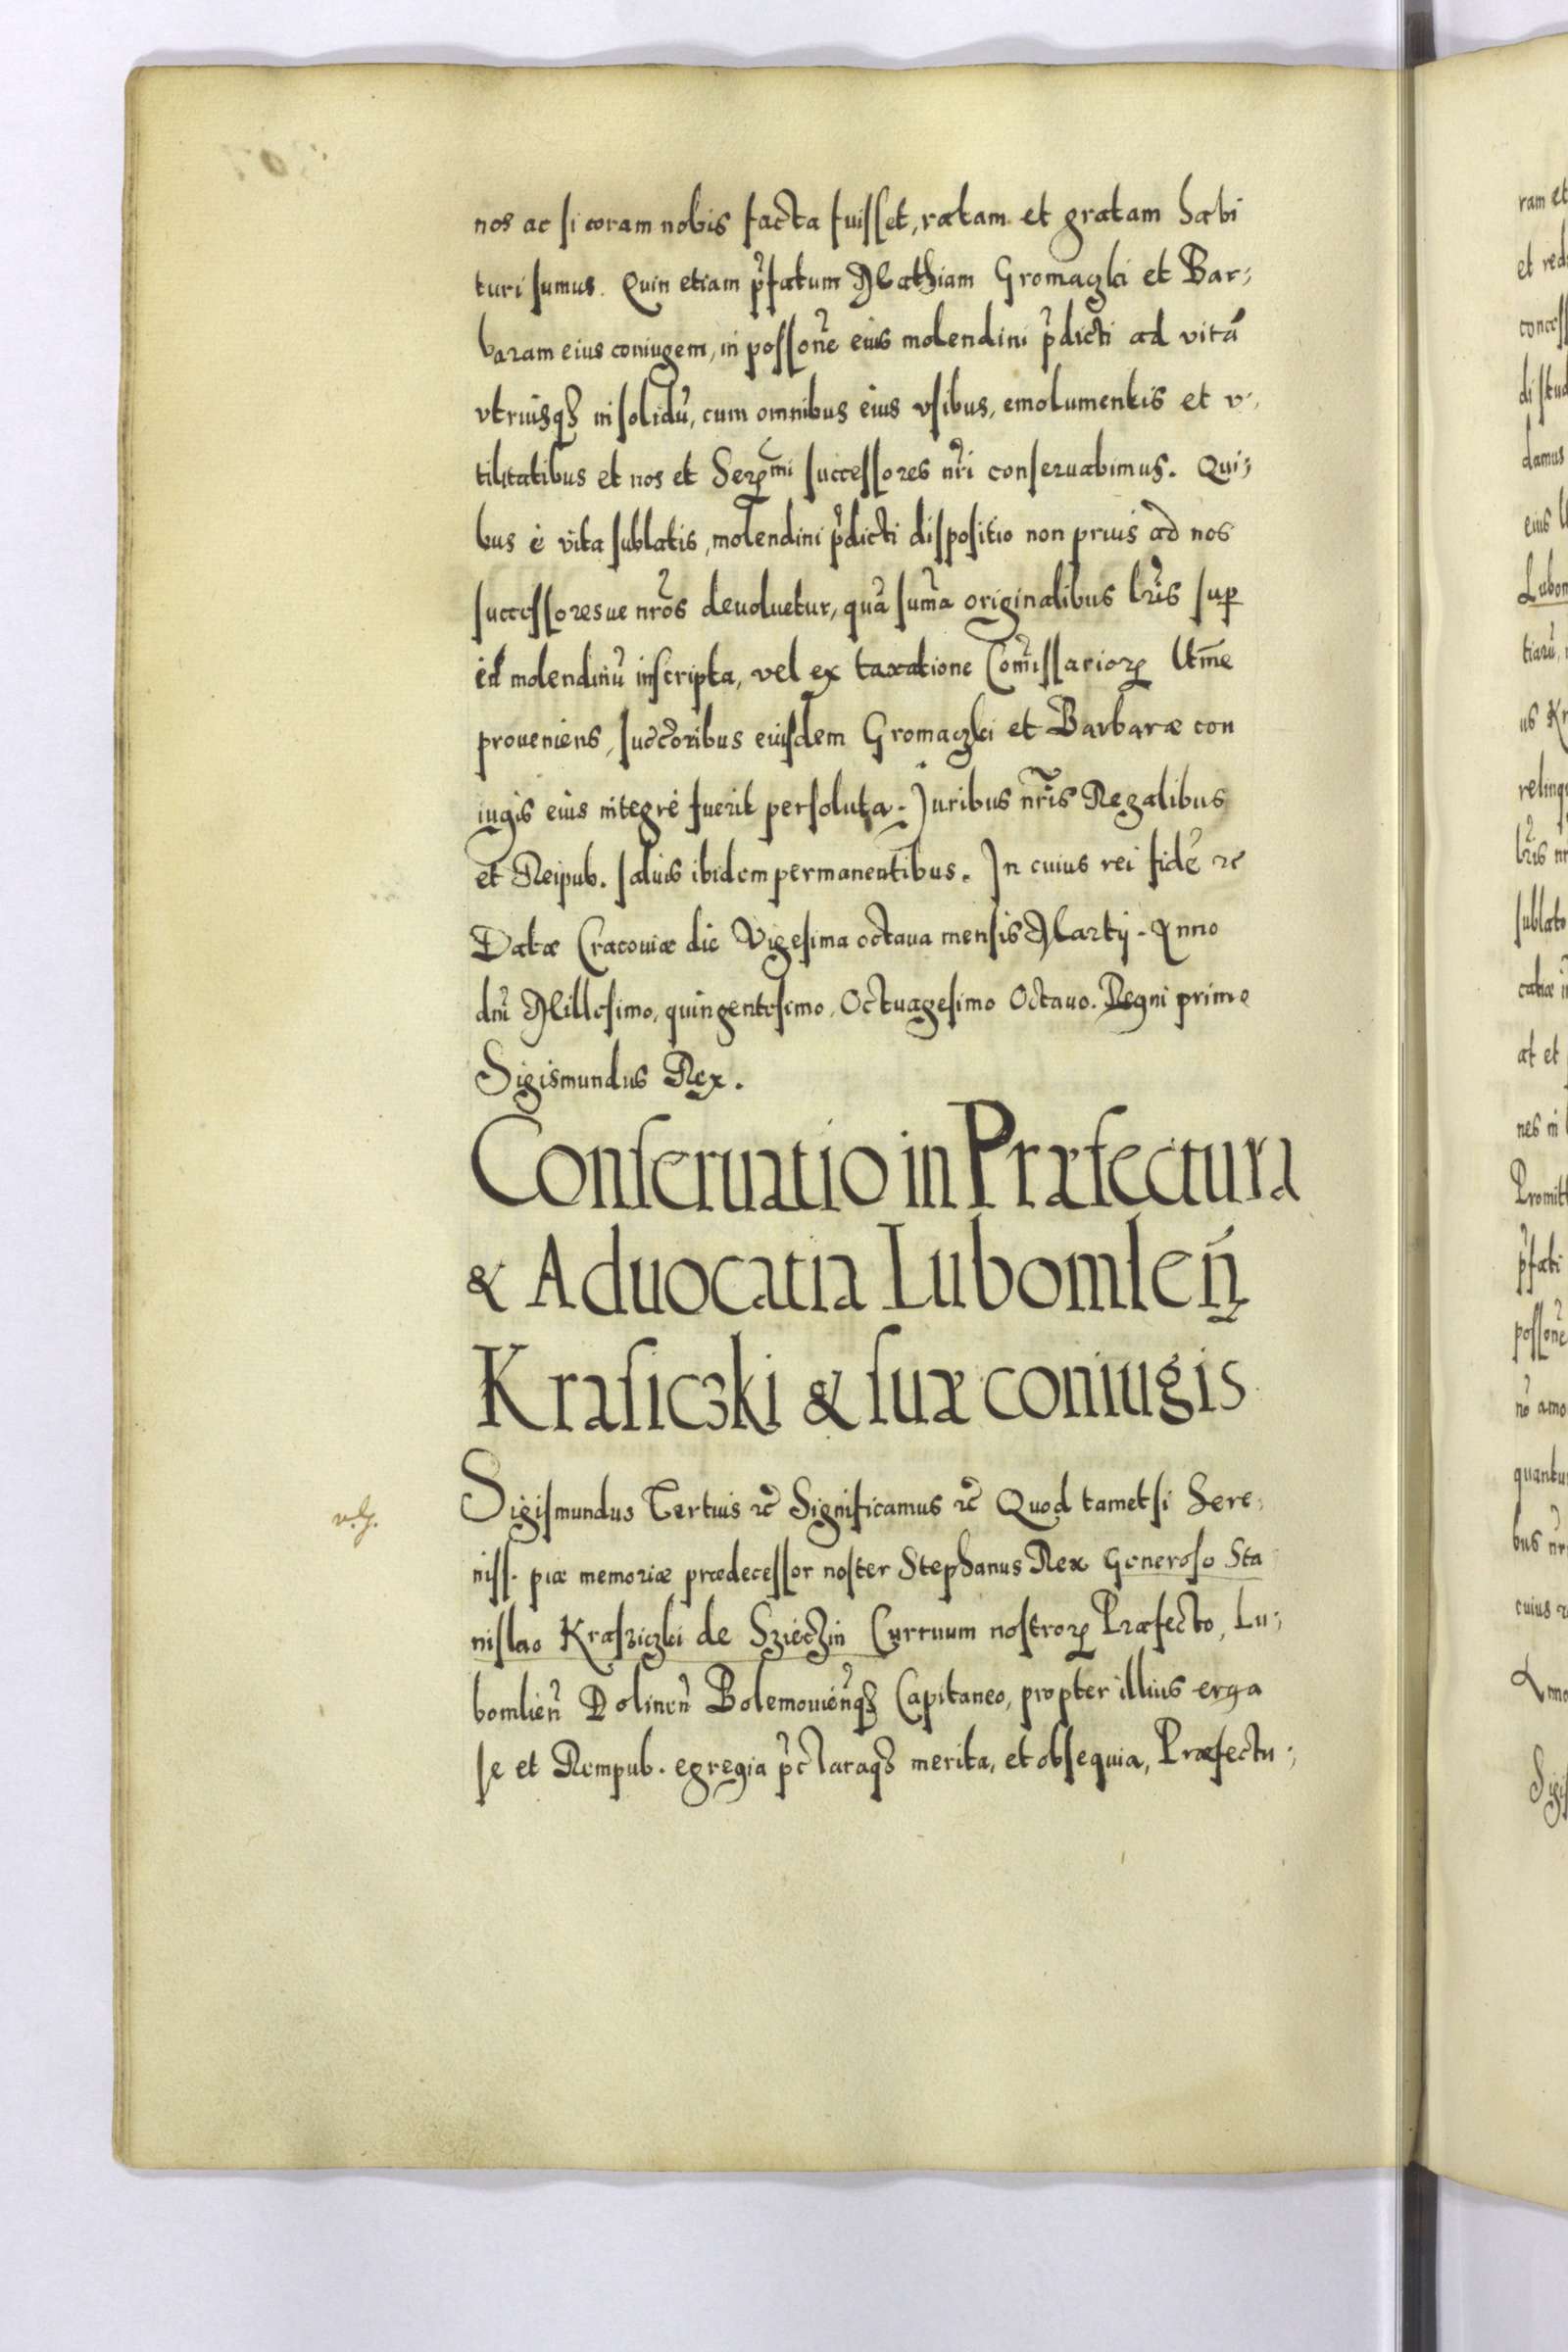 nos ac si coram nobis facta fuisset, ratam et gratam habi
turi sumus. Quin etiam p̃fatum Mathiam Gromaczki et Bar;
baram eius coniugem, in possoñe eius molendini p̃dicti ad vitã
vtriusq3 in solidũ, cum omnibus eius vsibus, emolumentis et v,
tilitatibus et nos et Serꝫmi successores nr̃i conseruabimus. Qui;
bus è vita sublatis, molendini p̃dicti dispositio non prius ad nos
successoresue nr̃os deuoluetur, quã sum̃a originalibus lr̃is suꝑ
id molendinũ inscripta, vel ex taxatione Com̃issarioꝝ
proueniens, succ̃oribus eiusdem Gromaczki et Barbaræ con
iugis eius integrè fuerit persoluta. Juribus nr̃is Regalibus
et Reipub. saluis ibidem permanentibus. In cuius rei fidẽ ꝛc̃
Datæ Cracouiæ die Vigesima octaua mensis Martij. Anno
dñi Millesimo, quingentesimo, Octuagesimo Octauo. Regni primo
Sigismundus Rex.
Conseruatio in Præfectura
& Aduocatia Lubomleñ
Krasiczki & suæ coniugis
Sigismundus Tertius ꝛc̃ Significamus ꝛc̃ Quod tametsi Sere;
niss. piæ memoriæ prædecessor noster Stephanus Rex Generoso Sta
nislao Krasziczki de Sziečzin Curruum nostroꝝ Præfecto, Lu;
bomlieñ Dolineñ Bolemouieñq3 Capitaneo, propter illius erga
se et Rempub. egregia p̃claraq3 merita, et obsequia, Præfectu;
ram et
et red
concess
di stud
damus
eius
Lubom
tiarũ,
us Kr
relinq
lr̃is nr
sublat
at et
nes in
Promitt
p̃fati
possoñe
nõ amo
quantu
bus nr̃
cuius r
Anno
Sigis